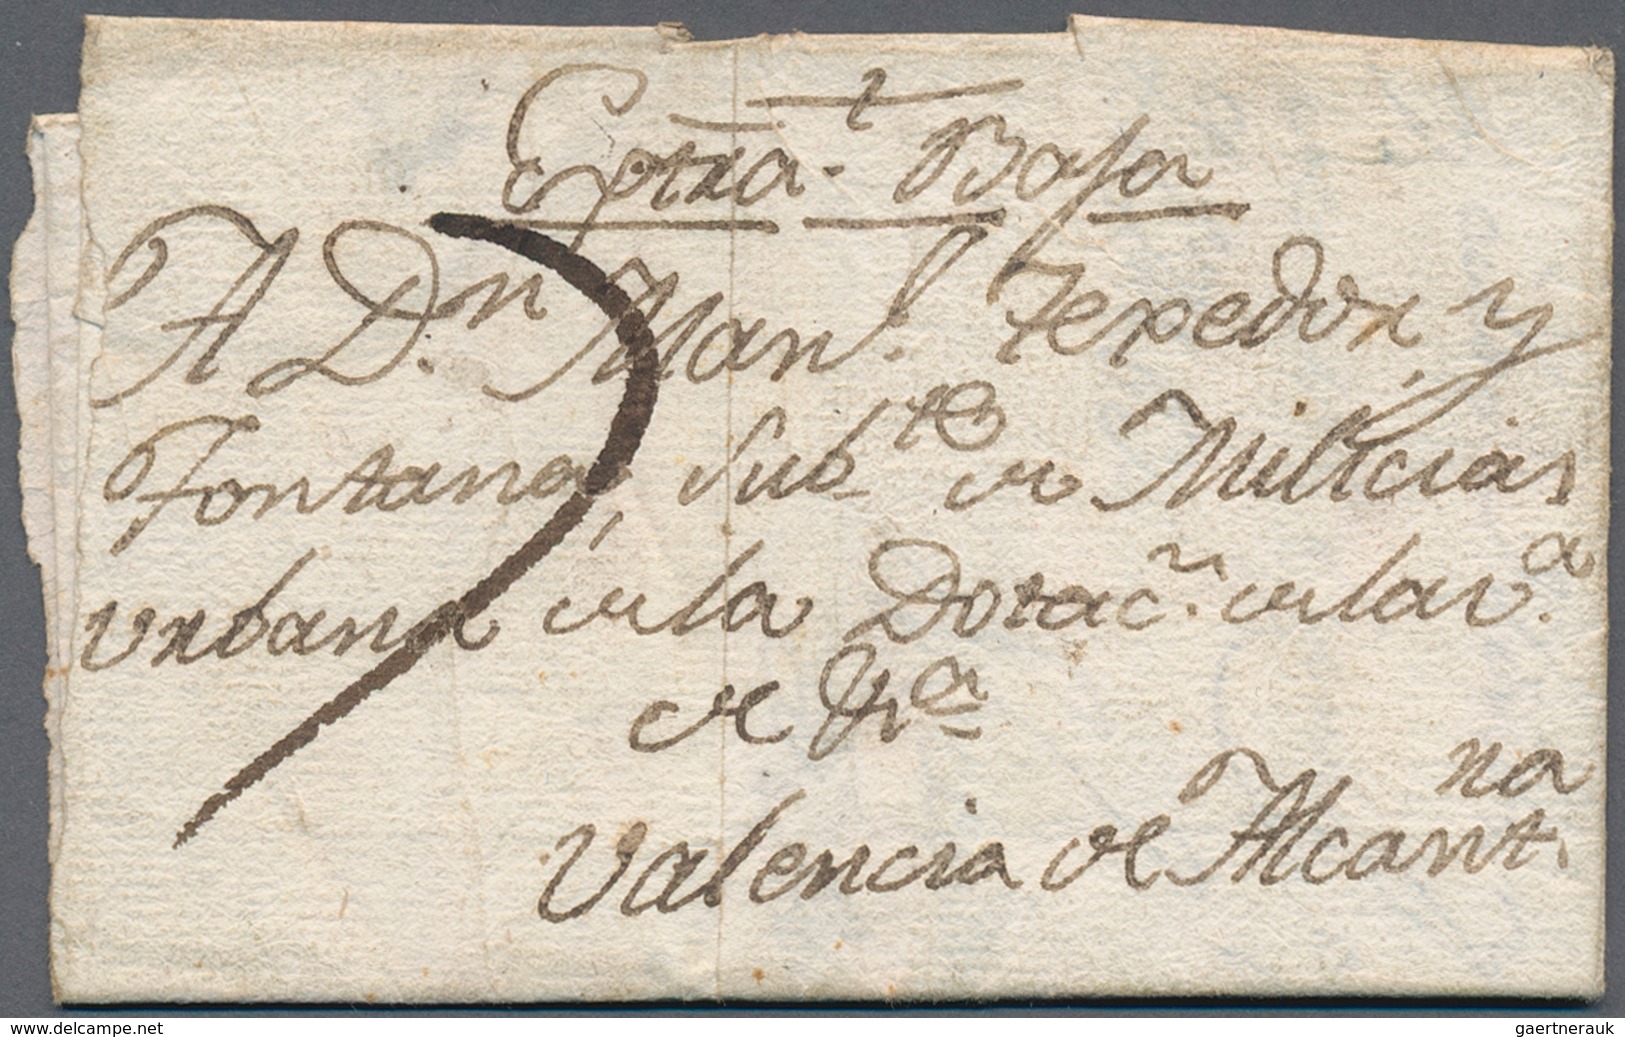 Extra. Baja
A Dn. Manl. Texedor, y
Fontana, Subte. de Milicias
Urbanas de la Dotacn. de la va.
de
Valencia de Alcantna
www.delcampe.com
gaertnerauk